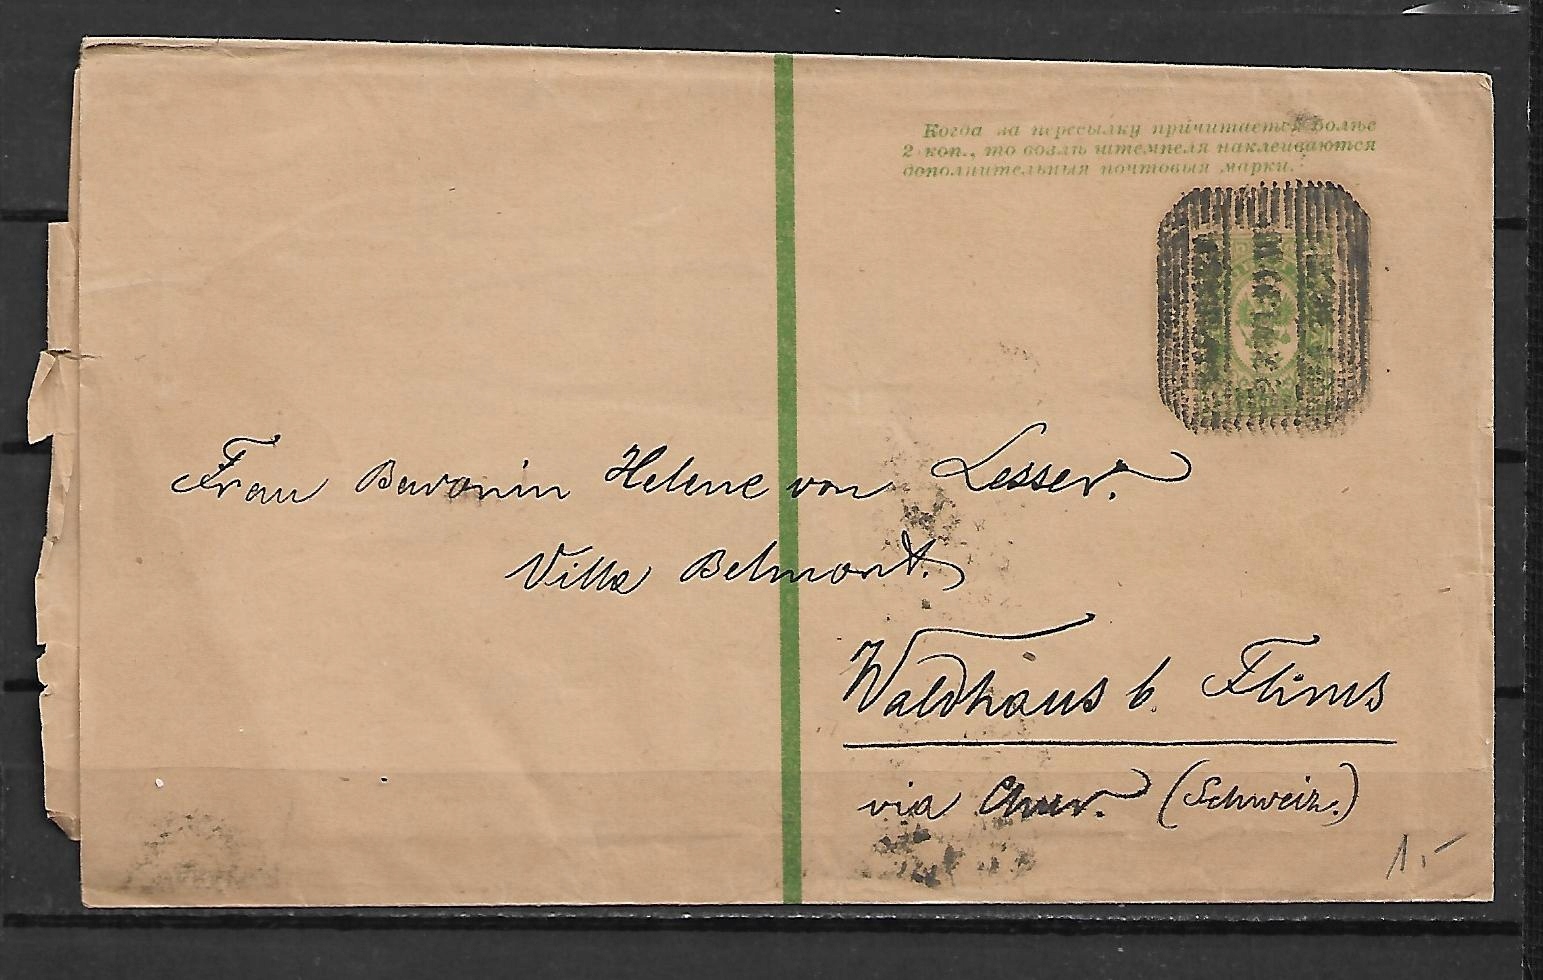 Когда за пересылку причитается болѣе
2 коп., то возлѣ штемпеля наклеиваются
дополнительныя почтовыя марки.
Frau Baronin Helene von Lesser.
Villa Belmont.
Waldhaus b. Flims
via Chur. (Schweiz.)
1.-